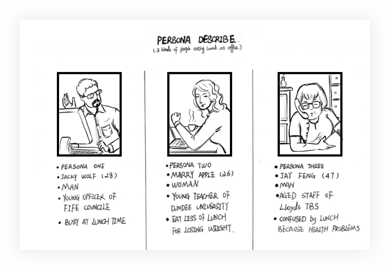 PERSONA DESCRIBE
(3 kinds of people eating lunch in office)
• PERSONA ONE
• JACKY WOLF (28)
• MAN
• YOUNG OFFICER OF
FIFE COUNCILE
• BUSY AT LUNCH TIME
• PERSONA TWO
• MARRY APPLE (26)
• WOMAN
• YOUNG TEACHER OF
DUNDEE UNIVERSITY
• EAT LESS OF LUNCH
FOR LOSING WEIGHT.
• PERSONA THREE
• JAY FENG (47)
• MAN
• AGED STAFF OF
Lloyds TBS
• CONFUSED by LUNCH
BECAUSE HEALTH PROBLEMS